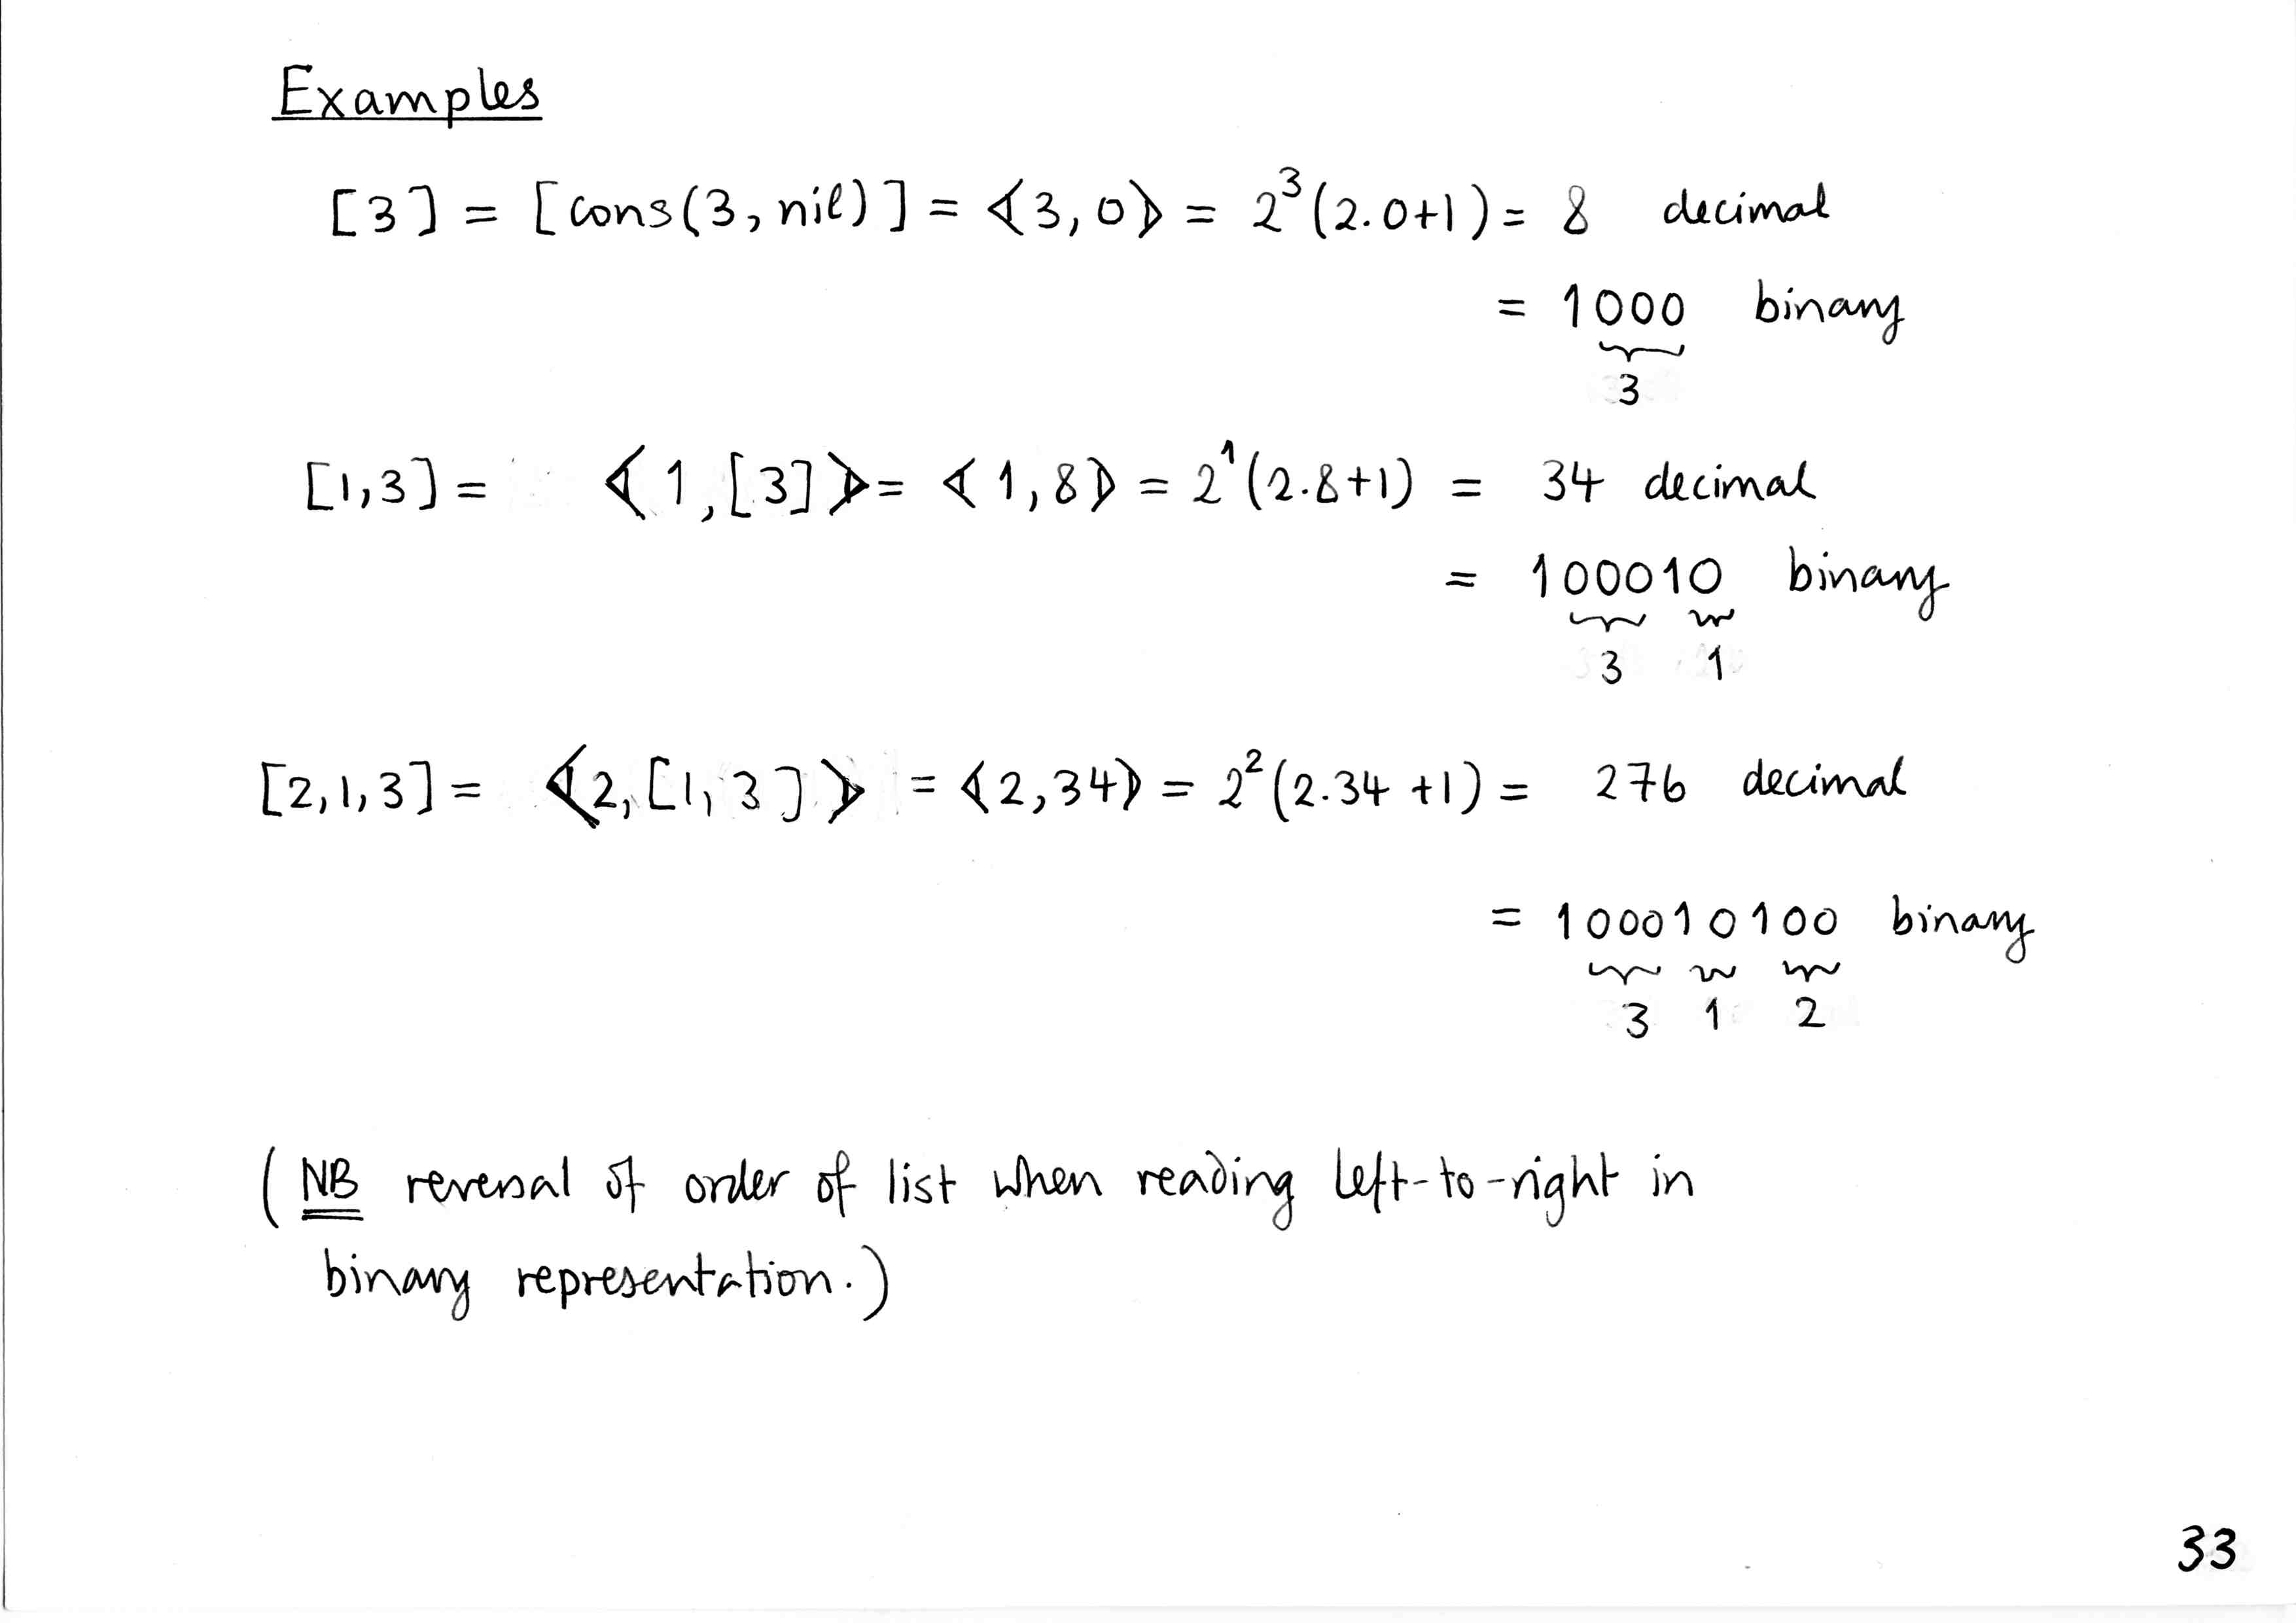 Examples
[3] = [cons(3, nil)] = ⟪3, 0⟫ = 2³(2.0+1) = 8 decimal
= 1000 binary
3
[1,3] = ⟪1, [3]⟫ = ⟪1, 8⟫ = 2¹(2.8+1) = 34 decimal
= 100010 binary
3 1
[2,1,3] = ⟪2, [1, 3]⟫ = ⟪2, 34⟫ = 2²(2.34 +1) = 276 decimal
= 100010100 binary
3 1 2
(NB reversal of order of list when reading left-to-right in
binary representation.)
33